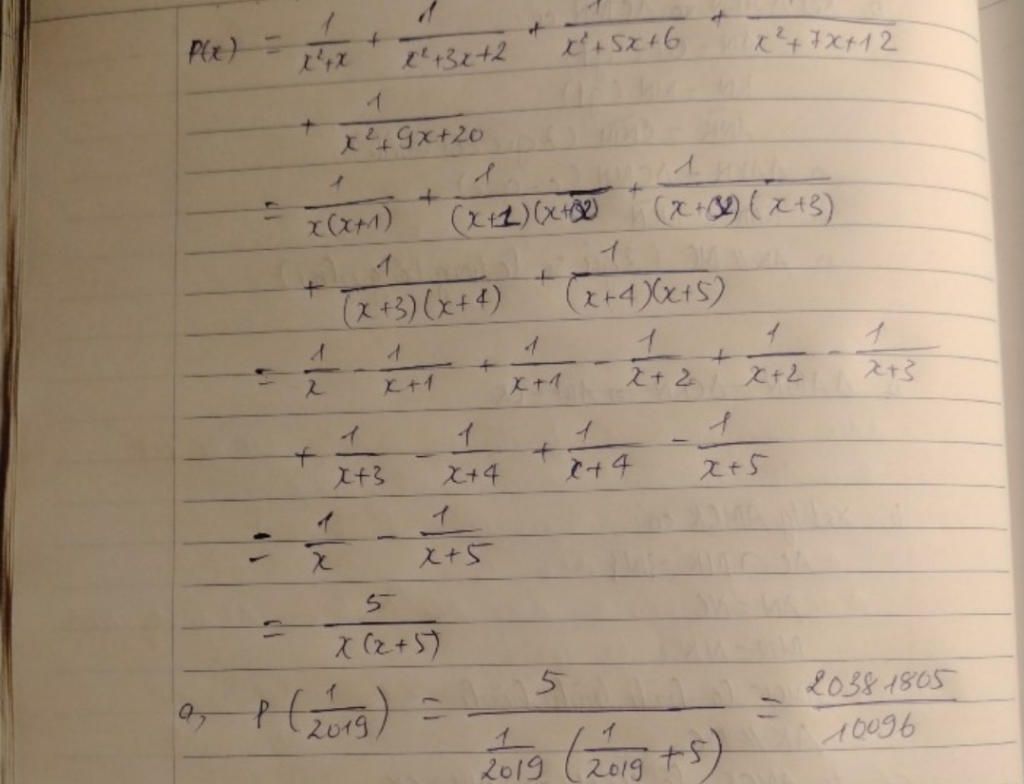 P(x) = 1/(x²+x) + 1/(x²+3x+2) + 1/(x²+5x+6) + 1/(x²+7x+12)
+ 1/(x²+9x+20)
= 1/(x(x+1)) + 1/((x+1)(x+2)) + 1/((x+2)(x+3))
+ 1/((x+3)(x+4)) + 1/((x+4)(x+5))
= 1/x - 1/(x+1) + 1/(x+1) - 1/(x+2) + 1/(x+2) - 1/(x+3)
+ 1/(x+3) - 1/(x+4) + 1/(x+4) - 1/(x+5)
= 1/x - 1/(x+5)
= 5/(x(x+5))
a, P(1/2019) = 5/(1/2019 (1/2019 + 5)) = 20381805/10096